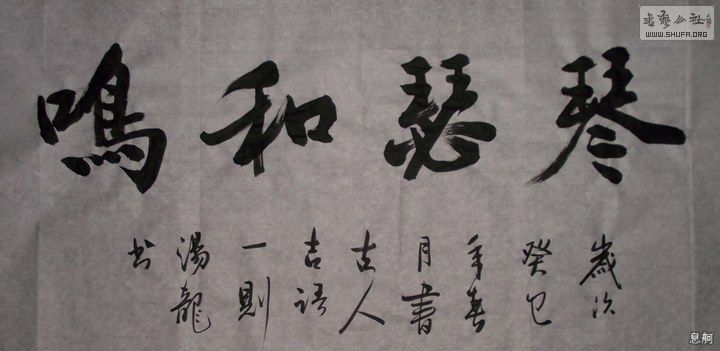 琴瑟和鳴
歲次
癸巳
年春
月書
古人
吉語
一則
湯龍
书
书艺公社
WWW.SHUFA.ORG
息舸